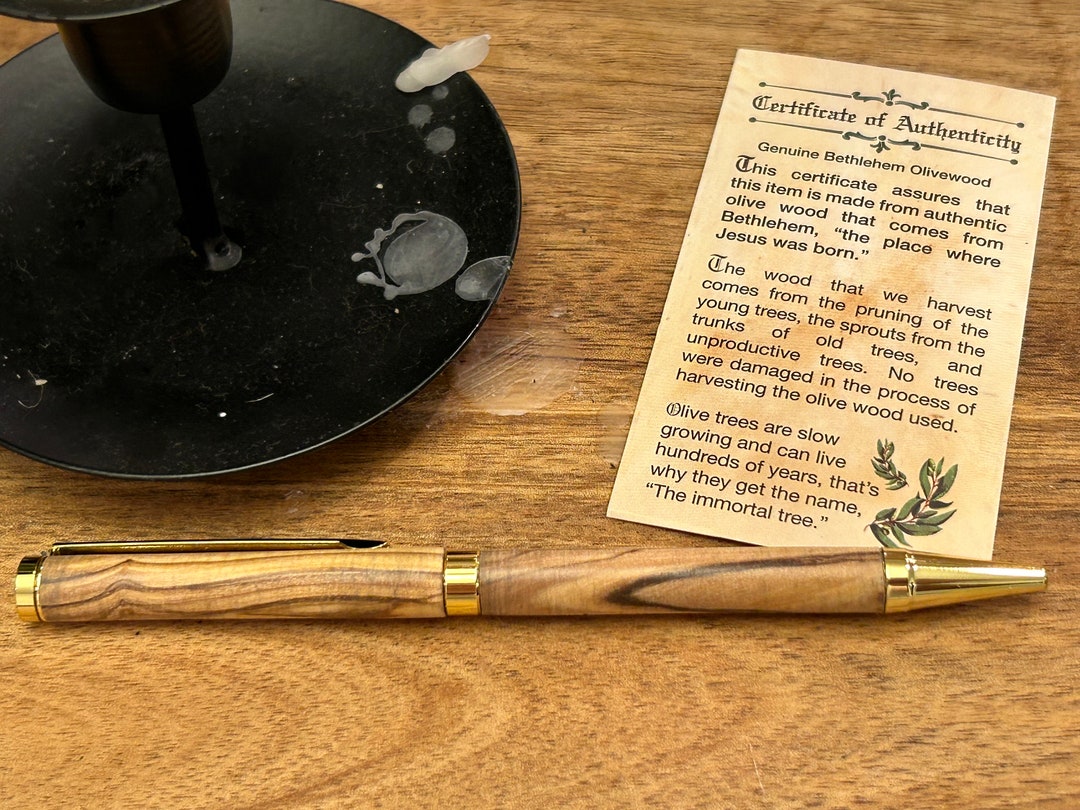 Certificate of Authenticity
Genuine Bethlehem Olivewood
This certificate assures that
this item is made from authentic
olive wood that comes from
Bethlehem, “the place where
Jesus was born.”
The wood that we harvest
comes from the pruning of the
young trees, the sprouts from the
trunks of old trees, and
unproductive trees. No trees
were damaged in the process of
harvesting the olive wood used.
Olive trees are slow
growing and can live
hundreds of years, that’s
why they get the name,
“The immortal tree.”